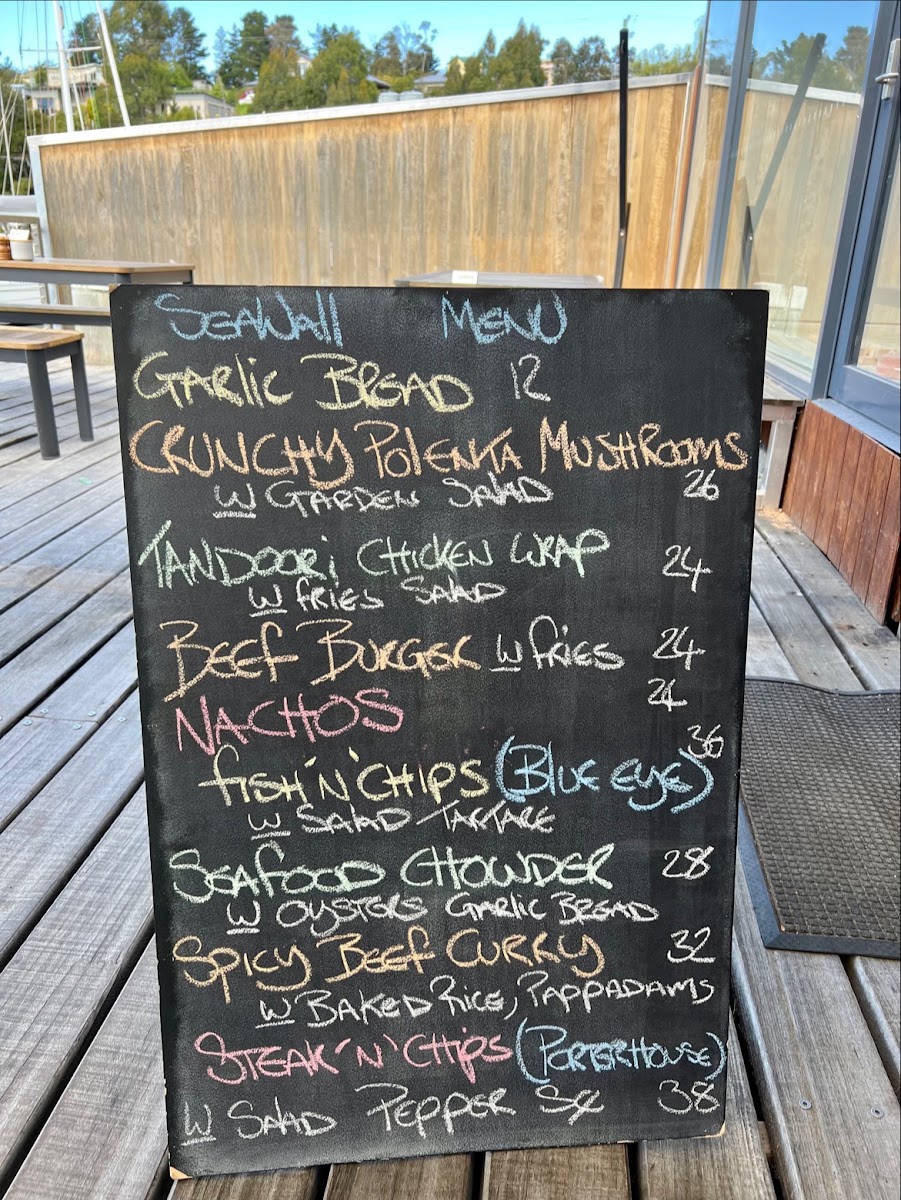 SEAWall MENU
GARlic BREAD 12
CRUNCHY POlENTA MUSHROOMS
w GARDEN SAlAD 26
TANDOORi CHICKEN WRAP 24
w fRiES SAlAD
BEEf BURGER w fRiES 24
NACHOS 24
36
fiSH 'N' CHIPS (BlUE EyE)
w SAlAD TARTARE
SEAfOOD CHOWDER 28
w OySTERS GARlic BREAD
SPicy BEEf CURRy 32
w BAKED RiCE, PAPPADAMS
STEAK 'N' CHiPS (PORTERHOUSE)
w SAlAD PEPPER 38